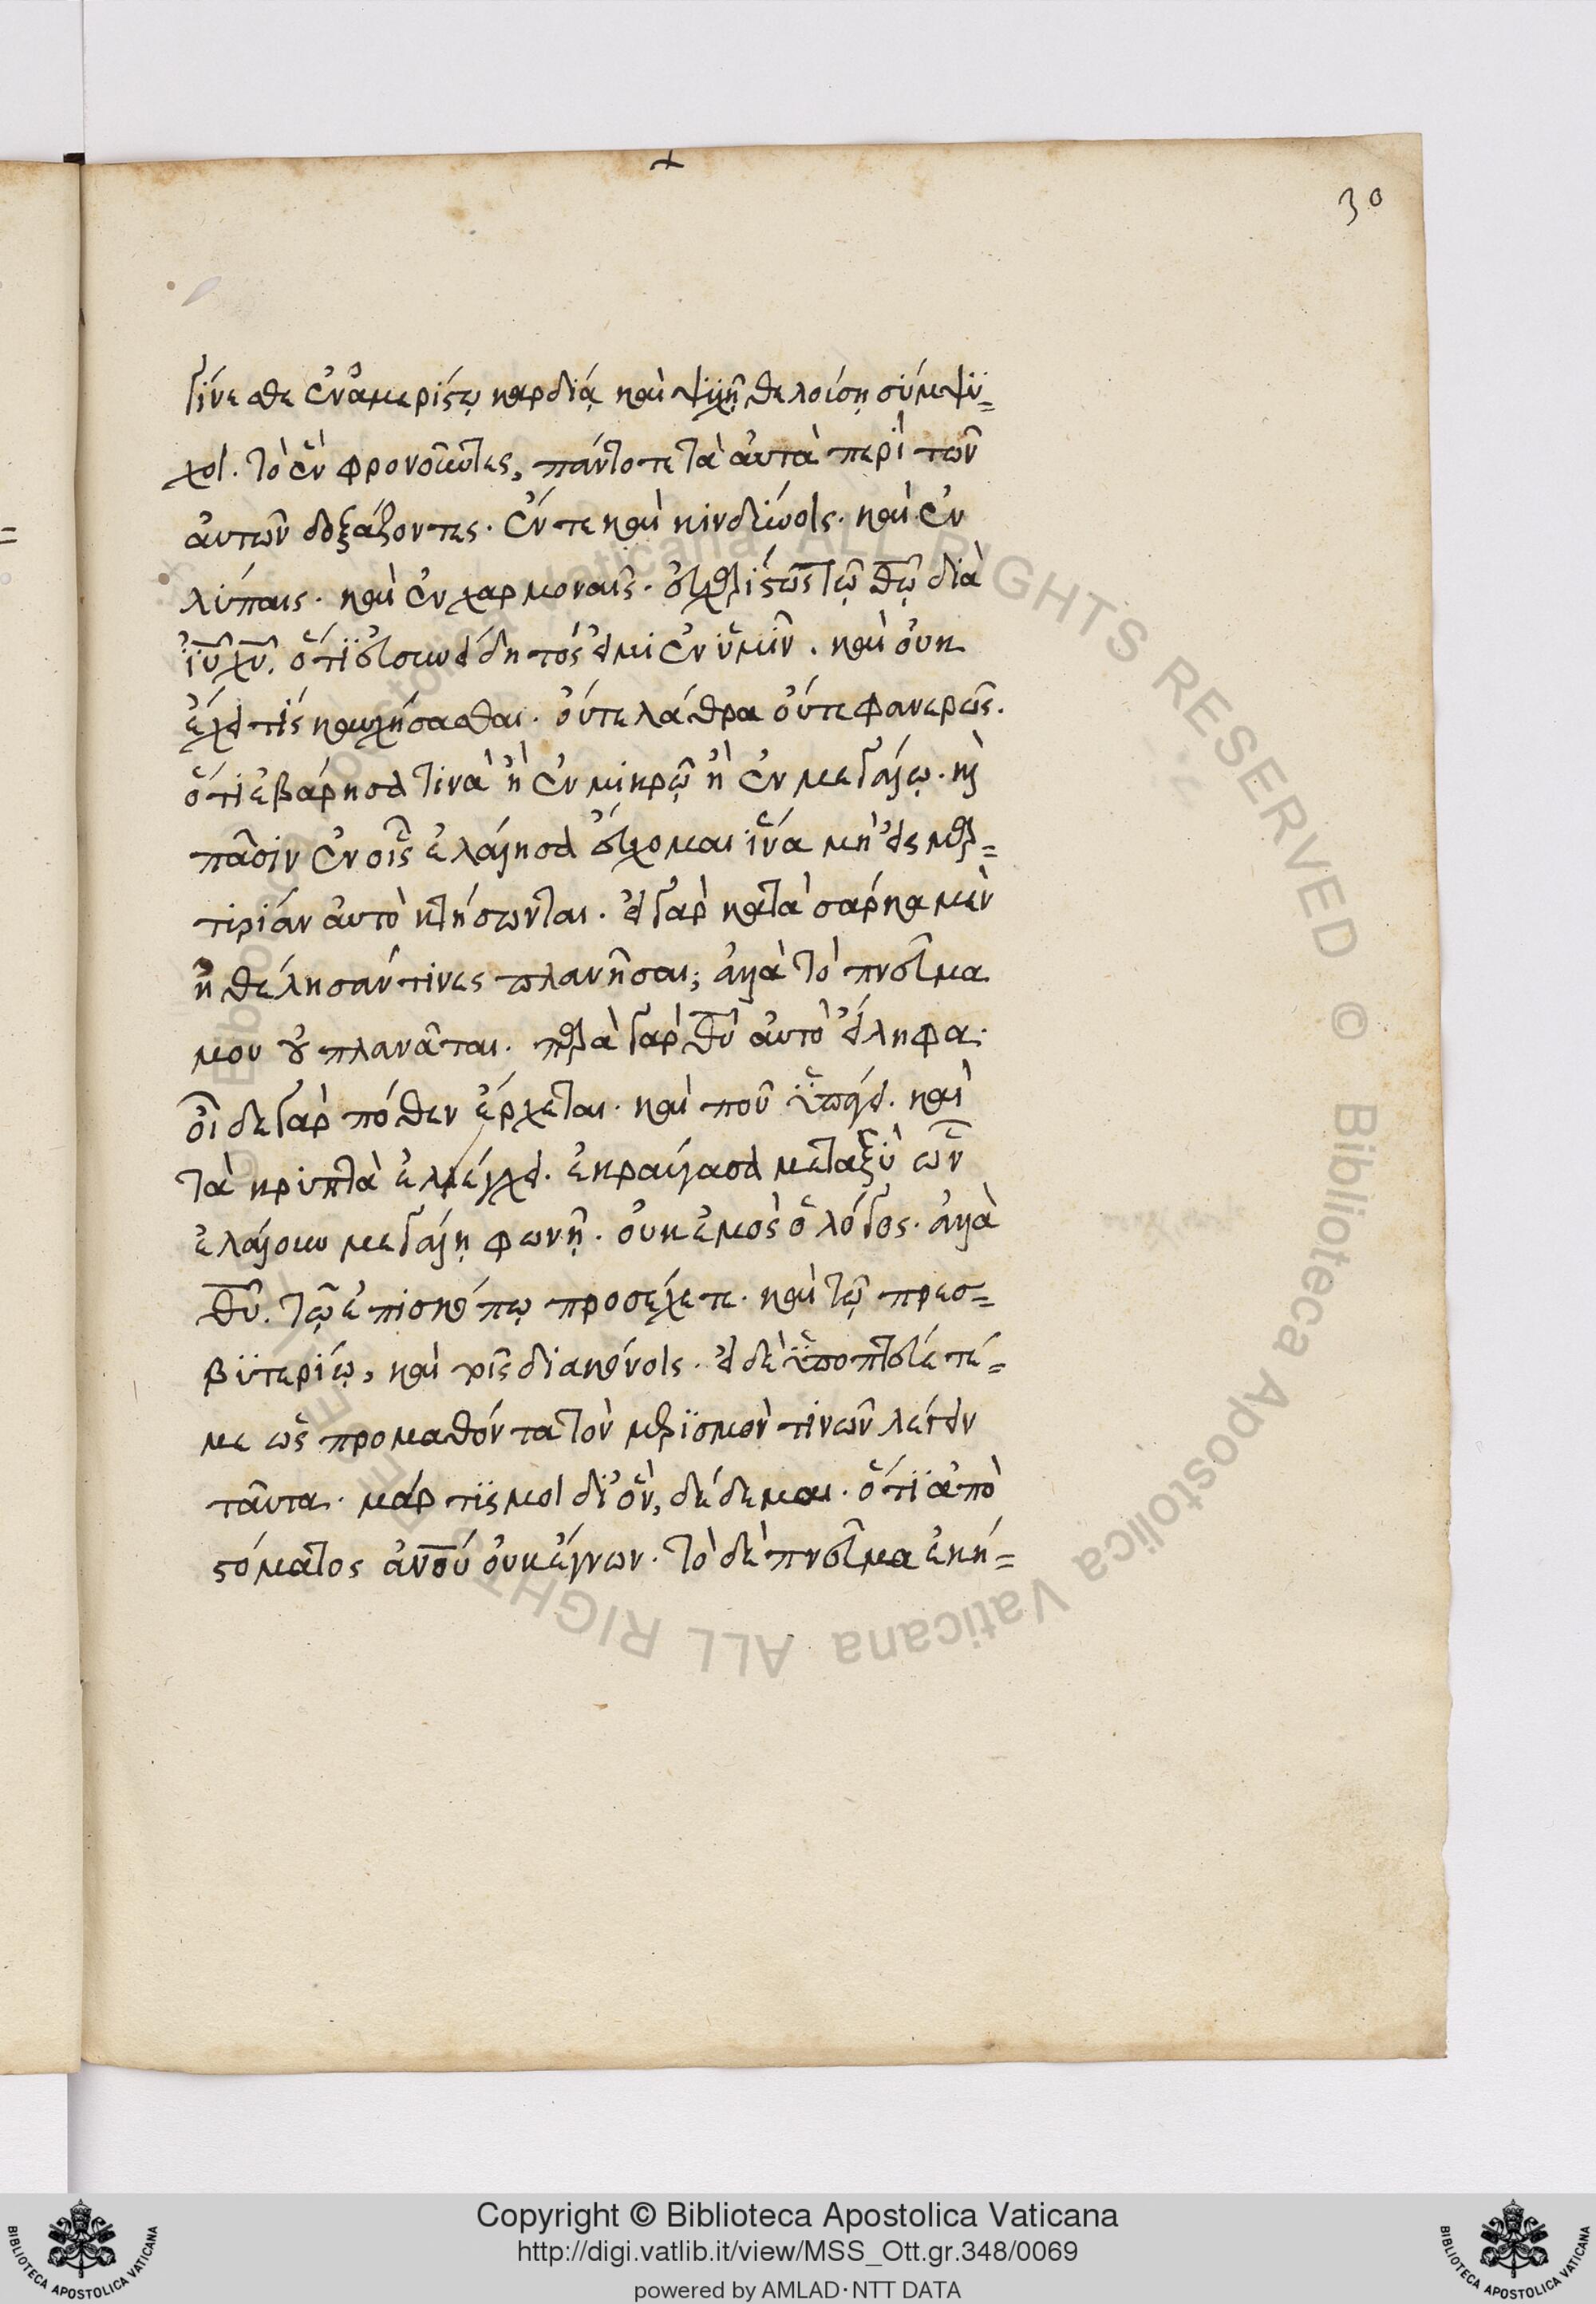 30
γίνεσθε ἐν ἀμερίστῳ καρδίᾳ καὶ ψϋχῇ θελούσῃ σύμψϋ=
χοι. τὸ ἓν φρονοῦντες, πάντοτε τὰ αὐτὰ περὶ τῶν
αὐτῶν δοξάζοντες. ἔν τε καὶ κινδύνοις. καὶ ἐν
λύπαις. καὶ ἐν χαρμοναῖς. εὐχαριστῶ τῷ θῶ διὰ
ἰῦ χῦ. ὅτι εὐσυνείδητός εἰμι ἐν ὑμῖν. καὶ οὐκ
ἔχει τίς καυχήσασθαι. οὔτε λάθρα οὔτε φανερῶς.
ὅτι ἐβάρησα τινὰ ἢ ἐν μικρῷ ἢ ἐν μεγάλῳ. κὶ
πᾶσιν ἐν οἷς ἐλάλησα εὔχομαι ἵνα μὴ εἰς μαρ=
τυρίαν αὐτὸ κτήσωνται. εἰ γὰρ κατὰ σάρκα μὲν
ἠθέλησάν τινες πλανῆσαι; ἀλλὰ τὸ πνεῦμα
μου οὐ πλανᾶται. παρὰ γὰρ θῦ αὐτὸ εἴληφα.
οἶδε γὰρ πόθεν ἔρχεται. καὶ ποῦ ὑπάγει. καὶ
τὰ κρυπτὰ ἐλέγχει. ἐκραύγασα μεταξὺ ὧν
ἐλάλουν μεγάλῃ φωνῇ. οὐκ ἐμὸς ὁ λόγος. ἀλλὰ
θῦ. τῷ ἐπισκόπῳ προσέχετε. καὶ τῷ πρεσ=
βϋτερίῳ, καὶ τοῖς διακόνοις. εἰ δὲ ὑποπτεύετέ=
με ὡς προμαθόντα τὸν μερϊσμὸν τινῶν λέγειν
ταῦτα. μάρτϋς μοι δι' ὃν, δέδεμαι. ὅτϊ ἀπὸ
στόματος ἀνου οὐκ ἔγνων. τὸ δὲ πνεῦμα ἐκή=
Copyright © Biblioteca Apostolica Vaticana
http://digi.vatlib.it/view/MSS_Ott.gr.348/0069
powered by AMLAD·NTT DATA